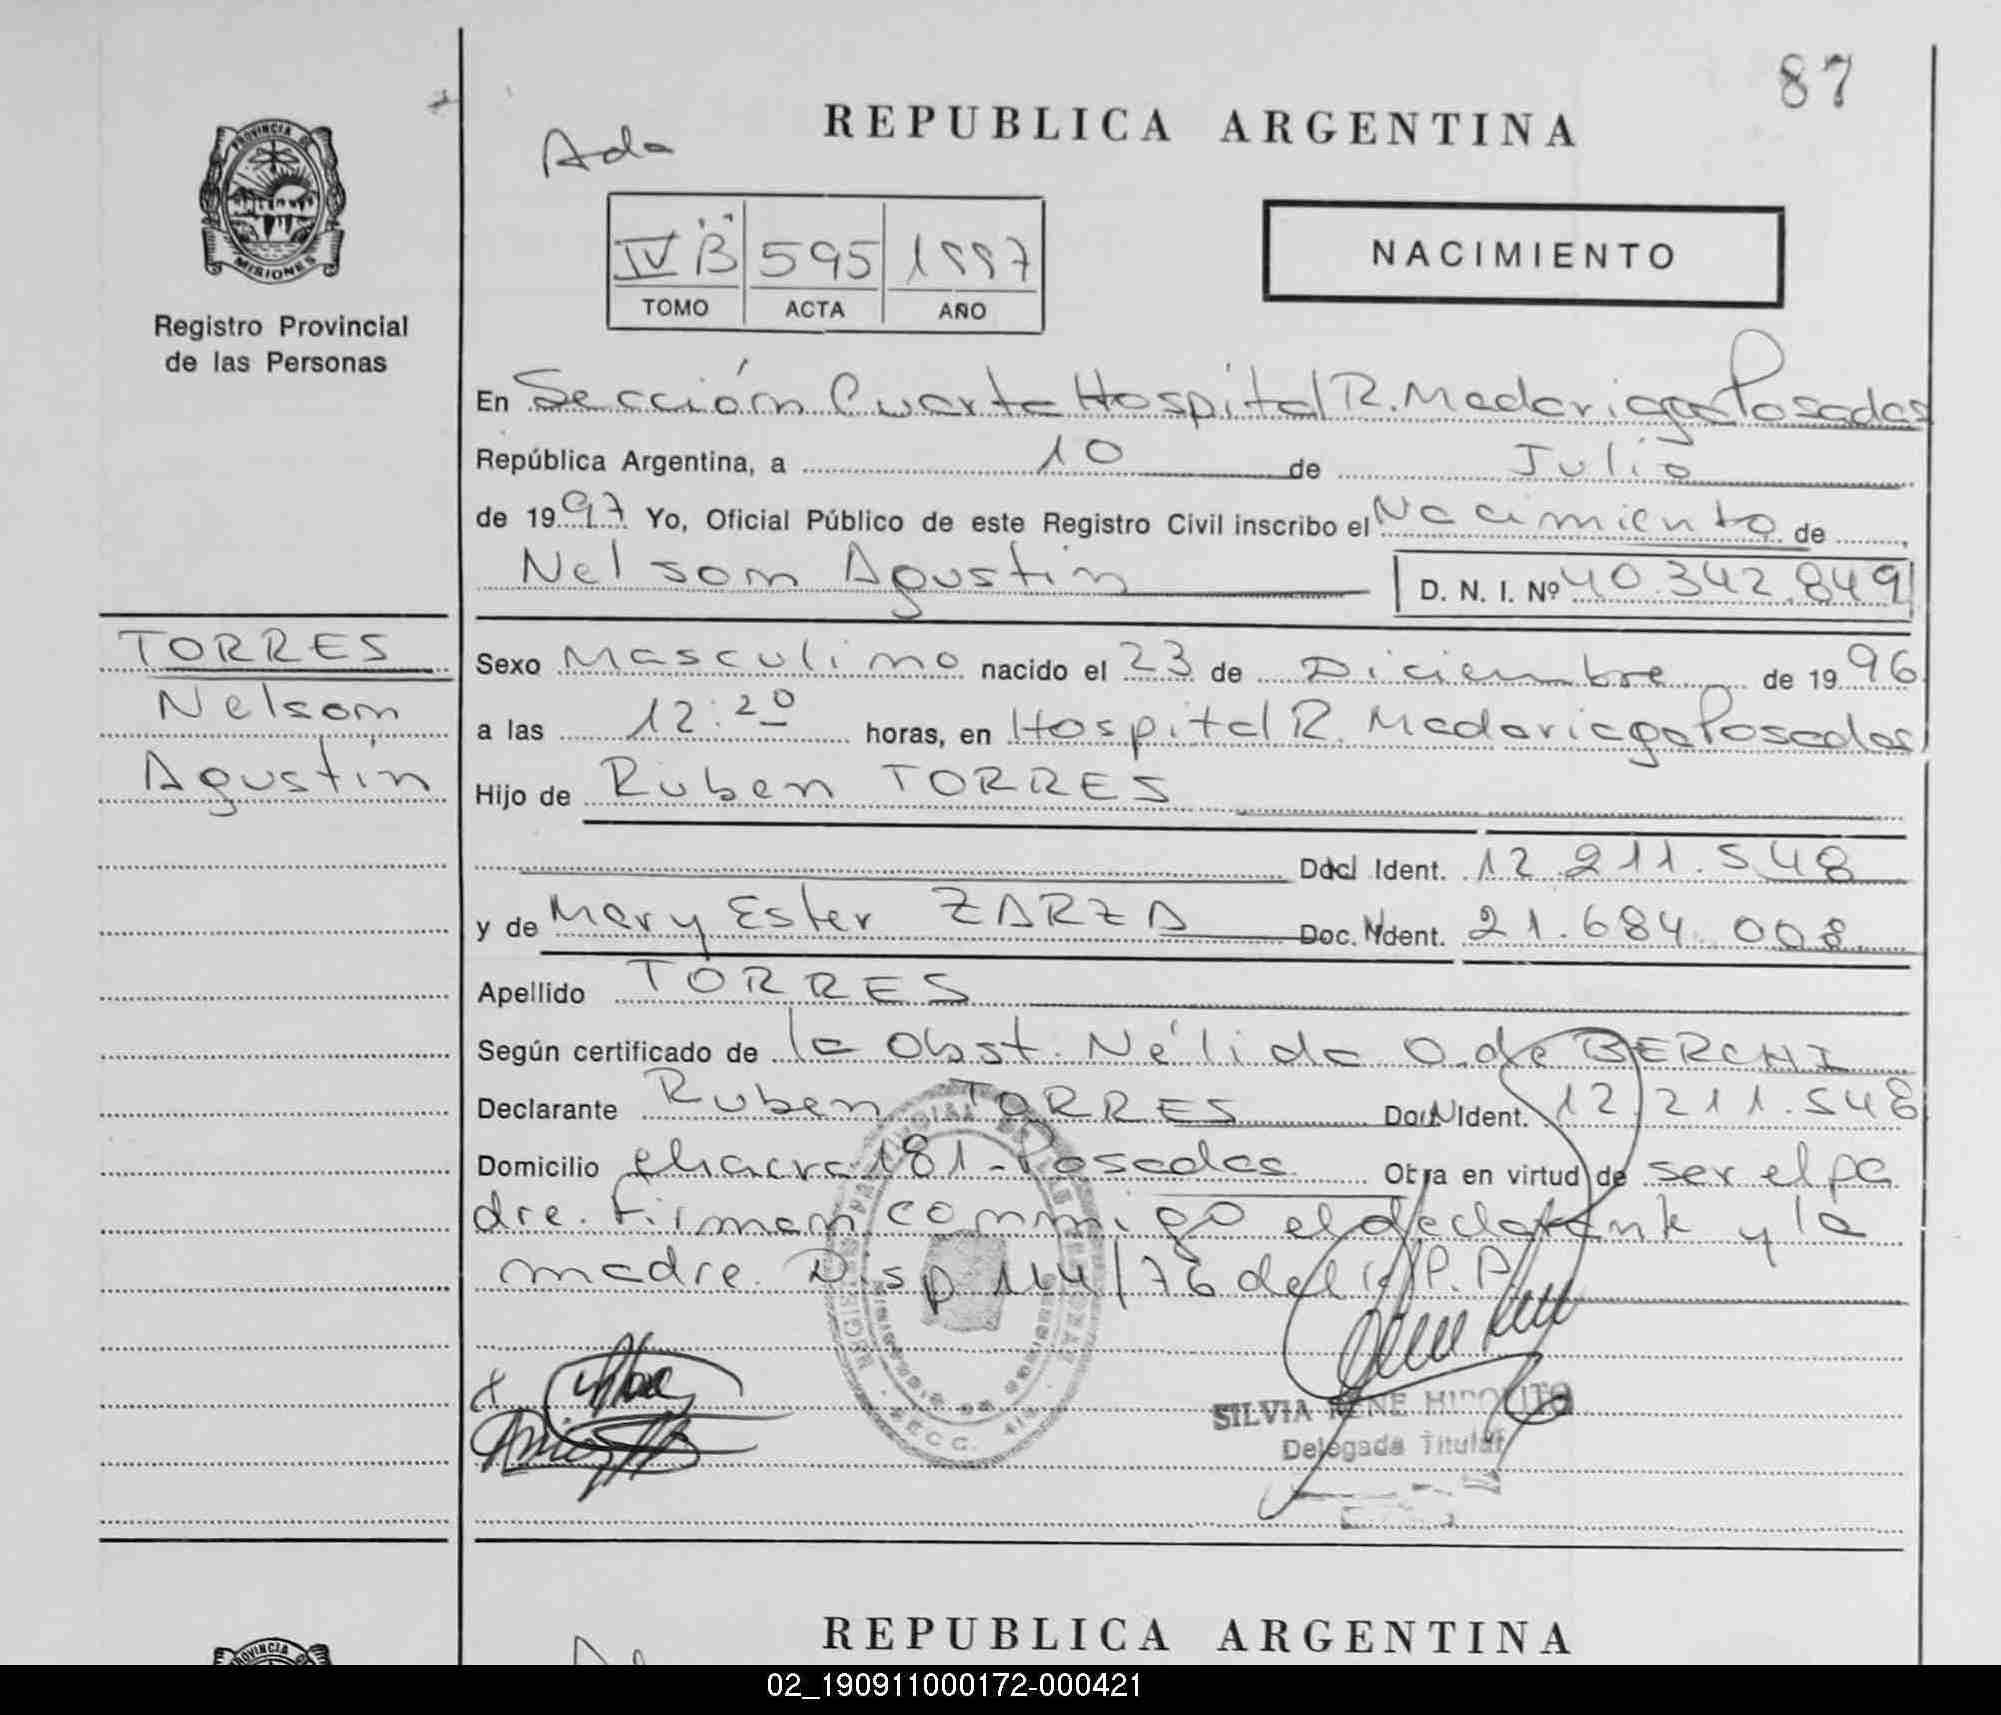 87
REPUBLICA ARGENTINA
Ada
PROVINCIA DE
MISIONES
Registro Provincial
de las Personas
IV "B" 595 1997
TOMO ACTA AÑO
NACIMIENTO
En Sección Cuarta Hospital R. Madariaga Posadas
República Argentina, a 10 de Julio
de 1997 Yo, Oficial Público de este Registro Civil inscribo el Nacimiento de
Nelson Agustin D. N. I. Nº 40.342.849
TORRES
Nelson
Agustin
Sexo Masculino nacido el 23 de Diciembre de 1996
a las 12:20 horas, en Hospital R. Madariaga Posadas
Hijo de Ruben TORRES
Doc. Ident. 12.211.548
y de Mary Ester ZARZA Doc. Ident. 21.684.008
Apellido TORRES
Según certificado de la Obst. Nélida O. de BERCHI
Declarante Ruben TORRES Doc. Ident. 12.211.548
Domicilio chacra 181 - Posadas Obra en virtud de ser el pa
dre. Firman conmigo el declarante y la
madre. Disp 144/76 del R.P.P.
SILVIA RENE HIPOLITO
Delegada Titular
SECC. 4ta.
REPUBLICA ARGENTINA
PROVINCIA
02_190911000172-000421